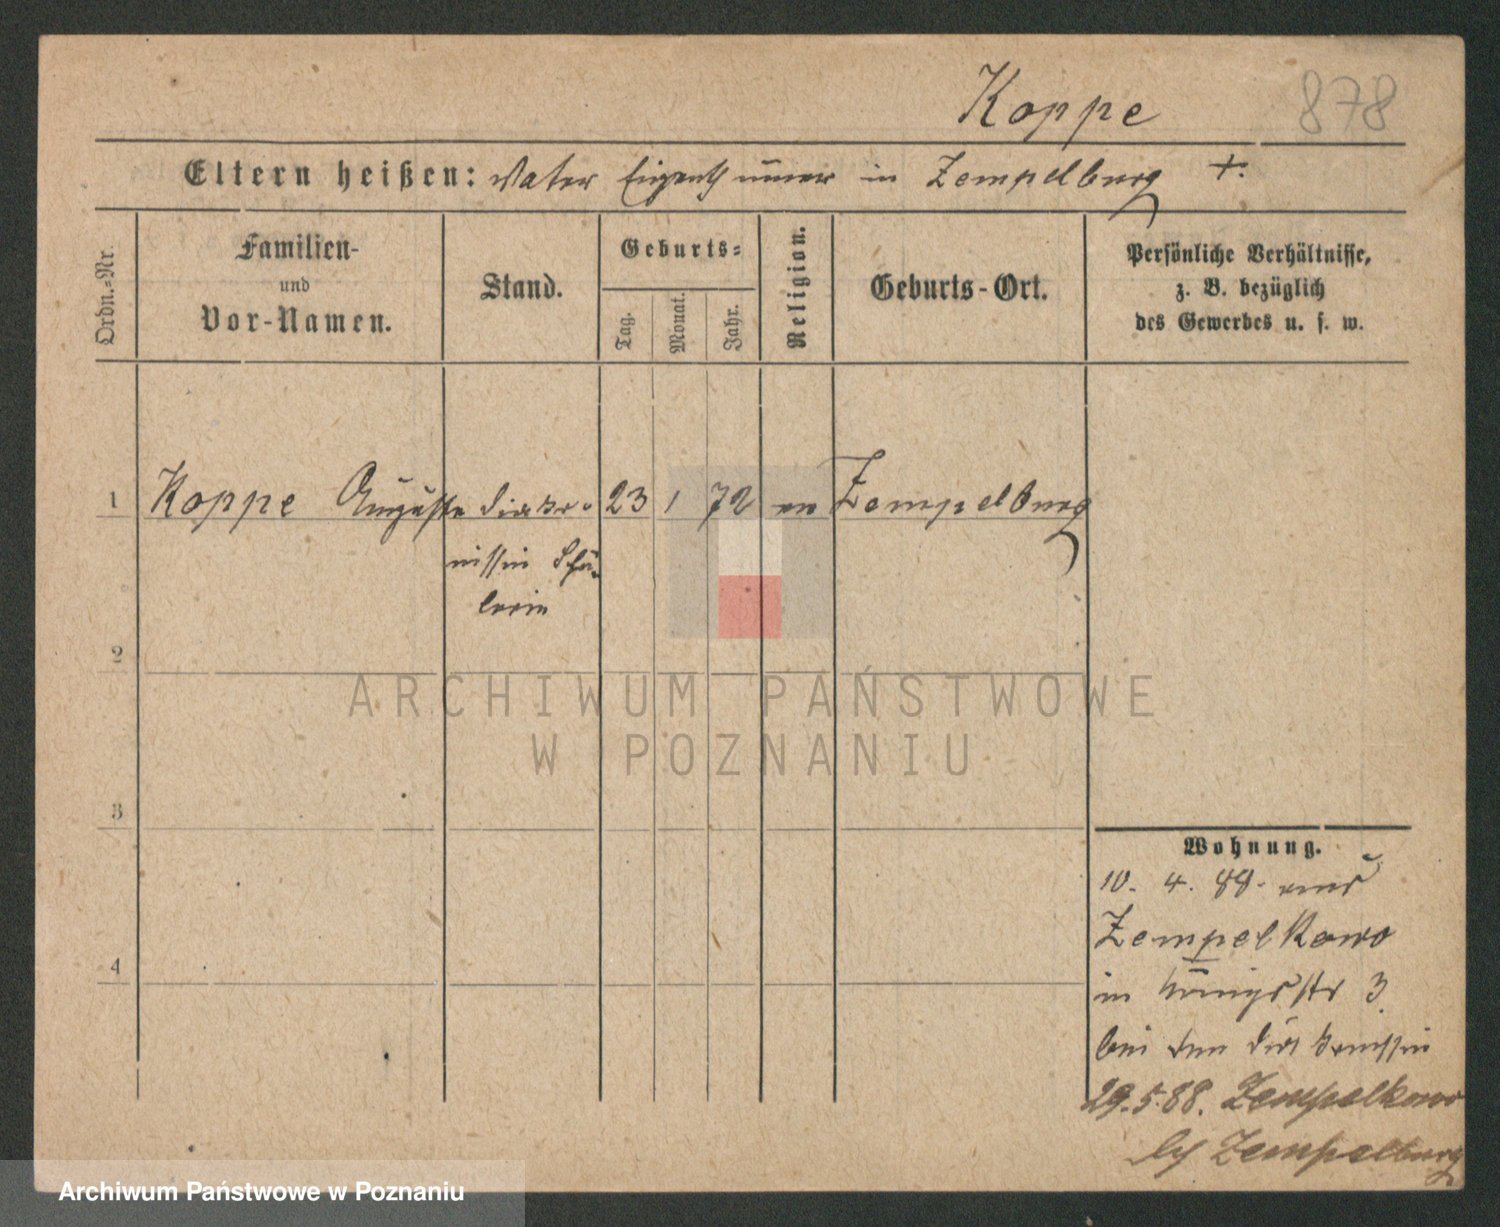 Koppe 878
Eltern heißen: Vater Eigenthümer in Zempelburg †.
Ordn.-Nr.
Familien-
und
Vor-Namen.
Stand.
Geburts-
Tag.
Monat.
Jahr.
Religion.
Geburts-Ort.
Persönliche Verhältnisse,
z. B. bezüglich
des Gewerbes u. s. w.
1 Koppe Auguste Diako- 23 1 72 ev Zempelburg
nissin Schü-
lerin
2
3
4
ARCHIWUM PAŃSTWOWE
W POZNANIU
Wohnung.
10. 4. 88. aus
Zempelkowo
in Königsstr 3
bei den Diakonissin
29.5.88. Zempelkowo
by Zempelburg
Archiwum Państwowe w Poznaniu